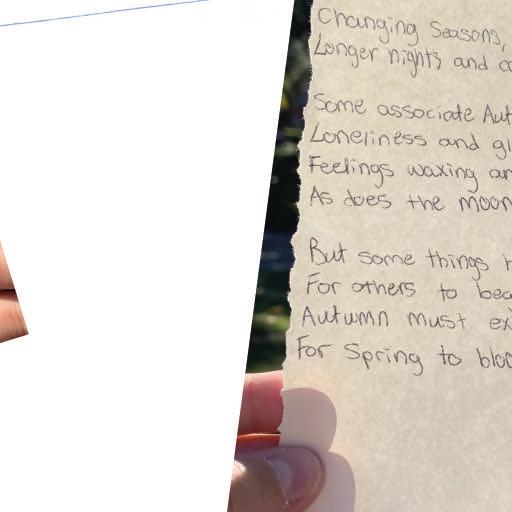 Changing Seasons,
Longer nights and
Some associate
Loneliness and
Feelings waxing
As does the moon
But some things
For others to
Autumn must
For Spring to